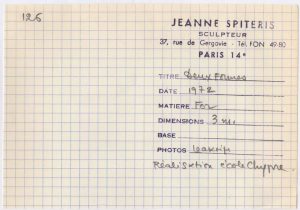 126
JEANNE SPITERIS
SCULPTEUR
37, rue de Gergovie - Tél. FON 49-80
PARIS 14e
TITRE Deux Formes
DATE 1972
MATIERE Fer
DIMENSIONS 3 m.
BASE
PHOTOS
Réalisation école Chypre